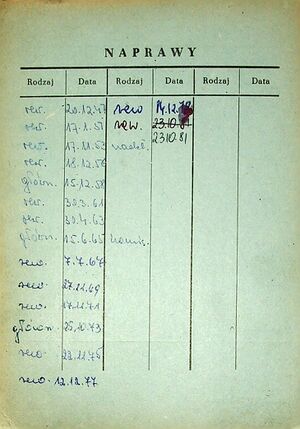 NAPRAWY
Rodzaj Data Rodzaj Data Rodzaj Data
rew. 20.12.47 rew 14.12.79
rew. 17.1.51 rew. 23.10.81
rew. 17.11.53 23.10.81
rew. 18.12.56
główn. 15.12.58
rew. 30.3.61
rew. 30.4.63
główn. 15.6.65
rew 7.7.67
rew 27.11.69
rew. 17.11.71
główn. 25.10.73
rew 22.11.75
rew. 12.12.77